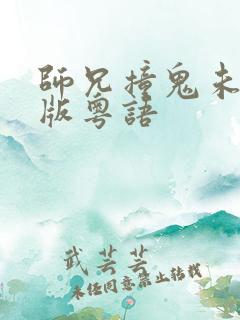 師兄撞鬼未
版粵語
武芸芸
未经同意禁止转载